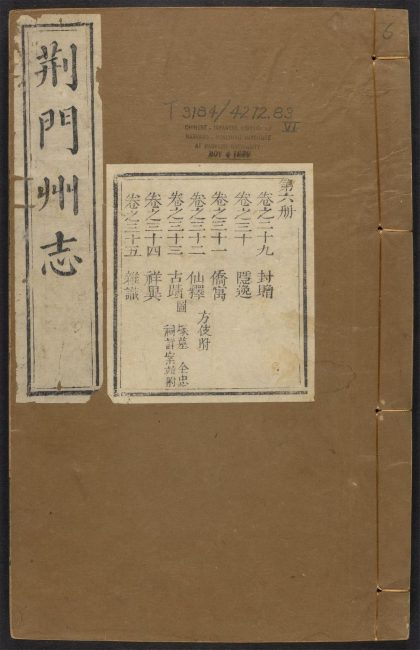 荆門州志
T 3184/4272.83
VI
CHINESE-JAPANESE LIBRARY OF
HARVARD-YENCHING INSTITUTE
AT HARVARD UNIVERSITY
6
第六册
卷之二十九 封贈
卷之三十 隱逸
卷之三十一 僑寓
卷之三十二 仙釋 方伎附
卷之三十三 古蹟圖 塚墓
卷之三十四 祥異
卷之三十五 雜識